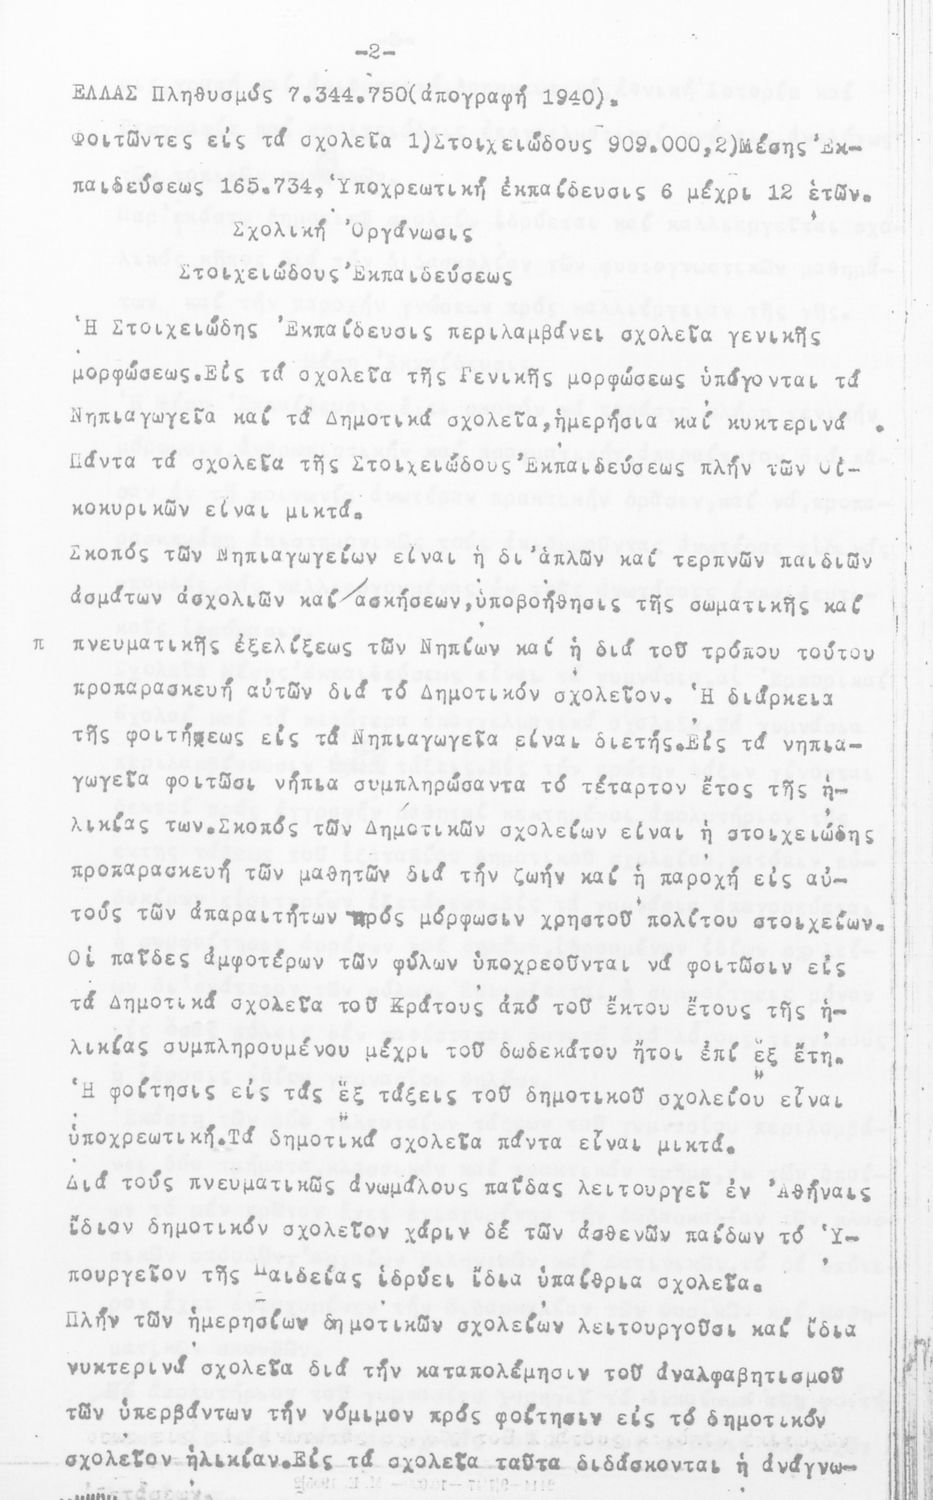 -2-
ΕΛΛΑΣ Πληθυσμός 7.344.750(ἀπογραφή 1940).
Φοιτῶντες εἰς τά σχολεῖα 1)Στοιχειώδους 909.000,2)Μέσης Ἐκ-
παιδεύσεως 165.734, Ὑποχρεωτική ἐκπαίδευσις 6 μέχρι 12 ἐτῶν.
Σχολική Ὀργάνωσις
Στοιχειώδους Ἐκπαιδεύσεως
Ἡ Στοιχειώδης Ἐκπαίδευσις περιλαμβάνει σχολεῖα γενικῆς
μορφώσεως.Εἰς τά σχολεῖα τῆς Γενικῆς μορφώσεως ὑπάγονται τά
Νηπιαγωγεῖα καί τά Δημοτικά σχολεῖα,ἡμερήσια καί κυκτερινά .
Πάντα τά σχολεῖα τῆς Στοιχειώδους Ἐκπαιδεύσεως πλήν τῶν Οἰ-
κοκυρικῶν εἶναι μικτά.
Σκοπός τῶν Νηπιαγωγείων εἶναι ἡ δι᾽ἁπλῶν καί τερπνῶν παιδιῶν
ἀσμάτων ἀσχολιῶν καί/ἀσκήσεων,ὑποβοήθησις τῆς σωματικῆς καί
π πνευματικῆς ἐξελίξεως τῶν Νηπίων καί ἡ διά τοῦ τρόπου τούτου
προπαρασκευή αὐτῶν διά τό Δημοτικόν σχολεῖον. Ἡ διάρκεια
τῆς φοιτήσεως εἰς τά Νηπιαγωγεῖα εἶναι διετής.Εἰς τά νηπια-
γωγεῖα φοιτῶσι νήπια συμπληρώσαντα τό τέταρτον ἔτος τῆς ἡ-
λικίας των.Σκοπός τῶν Δημοτικῶν σχολείων εἶναι ἡ στοιχειώδης
προπαρασκευή τῶν μαθητῶν διά τήν ζωήν καί ἡ παροχή εἰς αὐ-
τούς τῶν ἀπαραιτήτων πρός μόρφωσιν χρηστοῦ πολίτου στοιχείων.
Οἱ παῖδες ἀμφοτέρων τῶν φύλων ὑποχρεοῦνται νά φοιτῶσιν εἰς
τά Δημοτικά σχολεῖα τοῦ Κράτους ἀπό τοῦ ἕκτου ἔτους τῆς ἡ-
λικίας συμπληρουμένου μέχρι τοῦ δωδεκάτου ἤτοι ἐπί ἕξ ἔτη.
Ἡ φοίτησις εἰς τάς ἕξ τάξεις τοῦ δημοτικοῦ σχολείου εἶναι
ὑποχρεωτική.Τά δημοτικά σχολεῖα πάντα εἶναι μικτά.
Διά τούς πνευματικῶς ἀνωμάλους παῖδας λειτουργεῖ ἐν Ἀθήναις
ἴδιον δημοτικόν σχολεῖον χάριν δέ τῶν ἀσθενῶν παίδων τό Ὑ-
πουργεῖον τῆς Παιδείας ἱδρύει ἴδια ὑπαίθρια σχολεῖα.
Πλήν τῶν ἡμερησίων δημοτικῶν σχολείων λειτουργοῦσι καί ἴδια
νυκτερινά σχολεῖα διά τήν καταπολέμησιν τοῦ ἀναλφαβητισμοῦ
τῶν ὑπερβάντων τήν νόμιμον πρός φοίτησιν εἰς τό δημοτικόν
σχολεῖον ἡλικίαν.Εἰς τά σχολεῖα ταῦτα διδάσκονται ἡ ἀνάγνω-